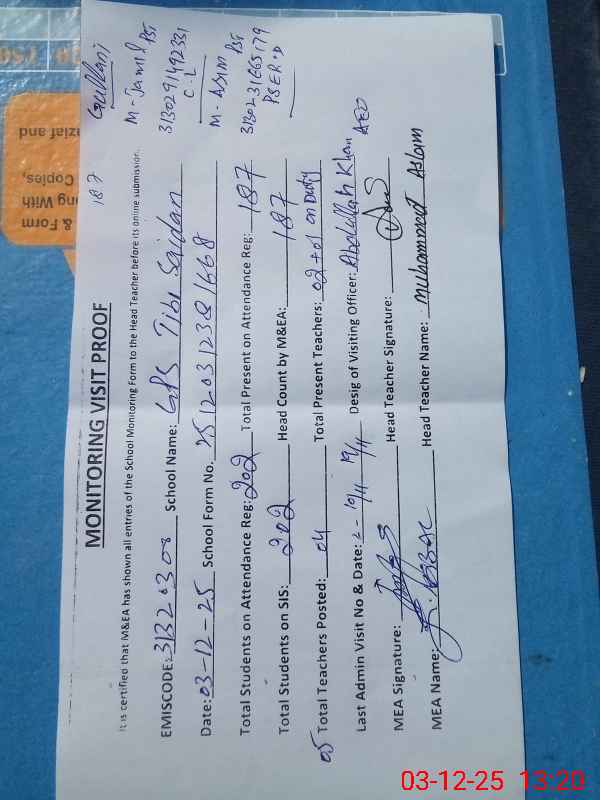 MONITORING VISIT PROOF
187
It is certified that M&EA has shown all entries of the School Monitoring Form to the Head Teacher before its online submission.
EMISCODE: 31320308 School Name: GPS Tibi Saidan
Date: 03-12-25 School Form No. 2512031238 1668
Total Students on Attendance Reg: 202 Total Present on Attendance Reg: 187
Total Students on SIS: 202 Head Count by M&EA: 187
05 Total Teachers Posted: 04 Total Present Teachers: 02+01 on Duty
Last Admin Visit No & Date: 2- 10/11 19/11 Desig of Visiting Officer: Abdullah Khan AEO
MEA Signature: Head Teacher Signature:
MEA Name: Head Teacher Name: Muhammad Aslam
M-Jamil PST
3130291492331
C.L
M-Asim PST
3130231665179
PSER.D
ziaf and
Copies,
ng With
& Form
03-12-25 13:20